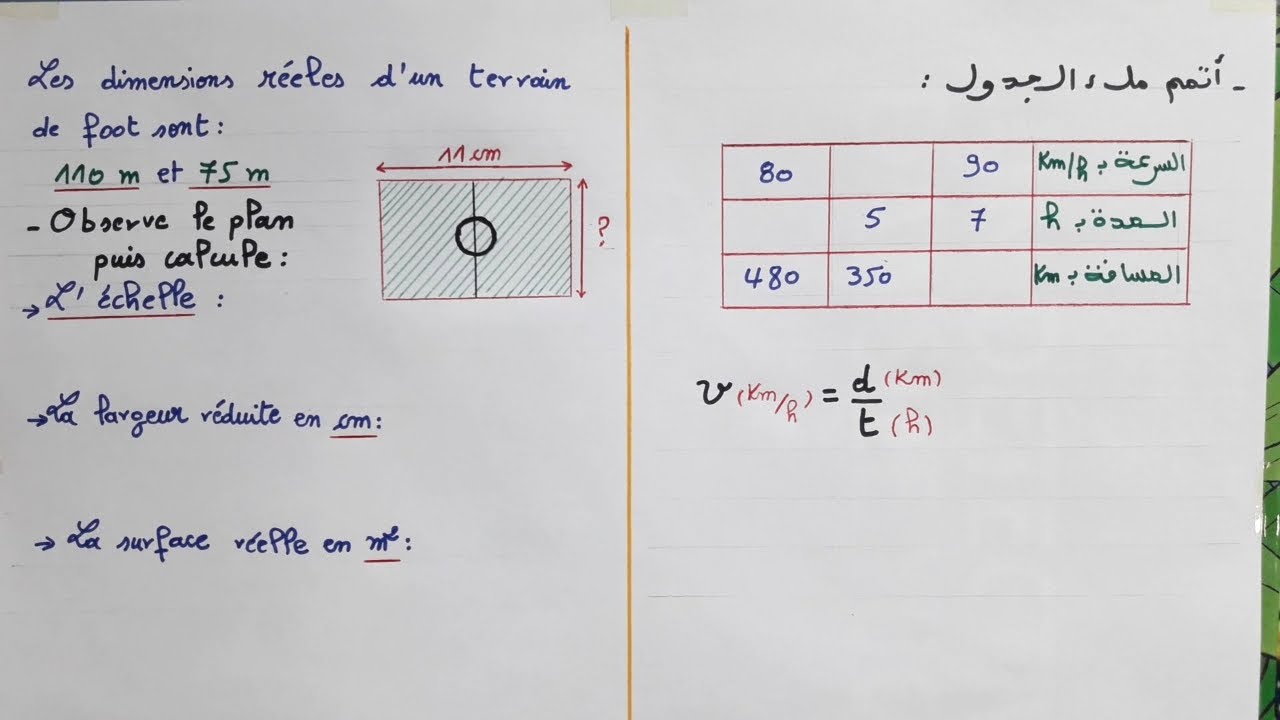 Les dimensions réeles d'un terrain
de foot sont :
110 m et 75 m
- Observe le plan
puis calcule :
→ L'échelle :
11 cm
?
→ La largeur réduite en cm :
→ La surface réelle en m² :
- أتمم ملء الجدول :
السرعة ب Km/h 90 80
المدة ب h 7 5
المسافة ب Km 350 480
v (Km/h) = d (Km)
t (h)